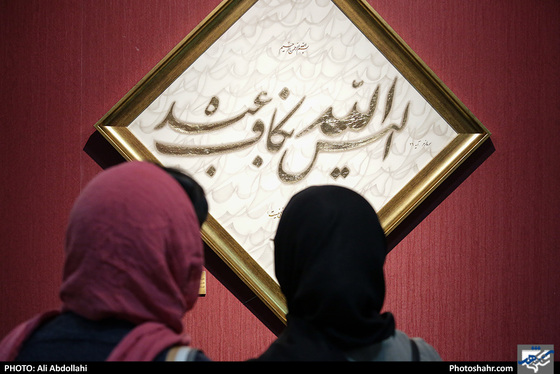 بسم الله الرحمن الرحیم
الیس الله بکاف عبده
PHOTO: Ali Abdollahi
Photoshahr.com